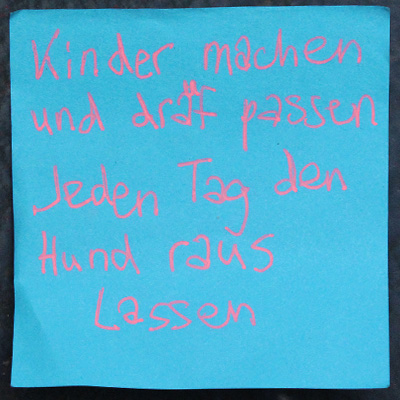 Kinder machen
und dräf passen
Jeden Tag den
Hund raus
Lassen